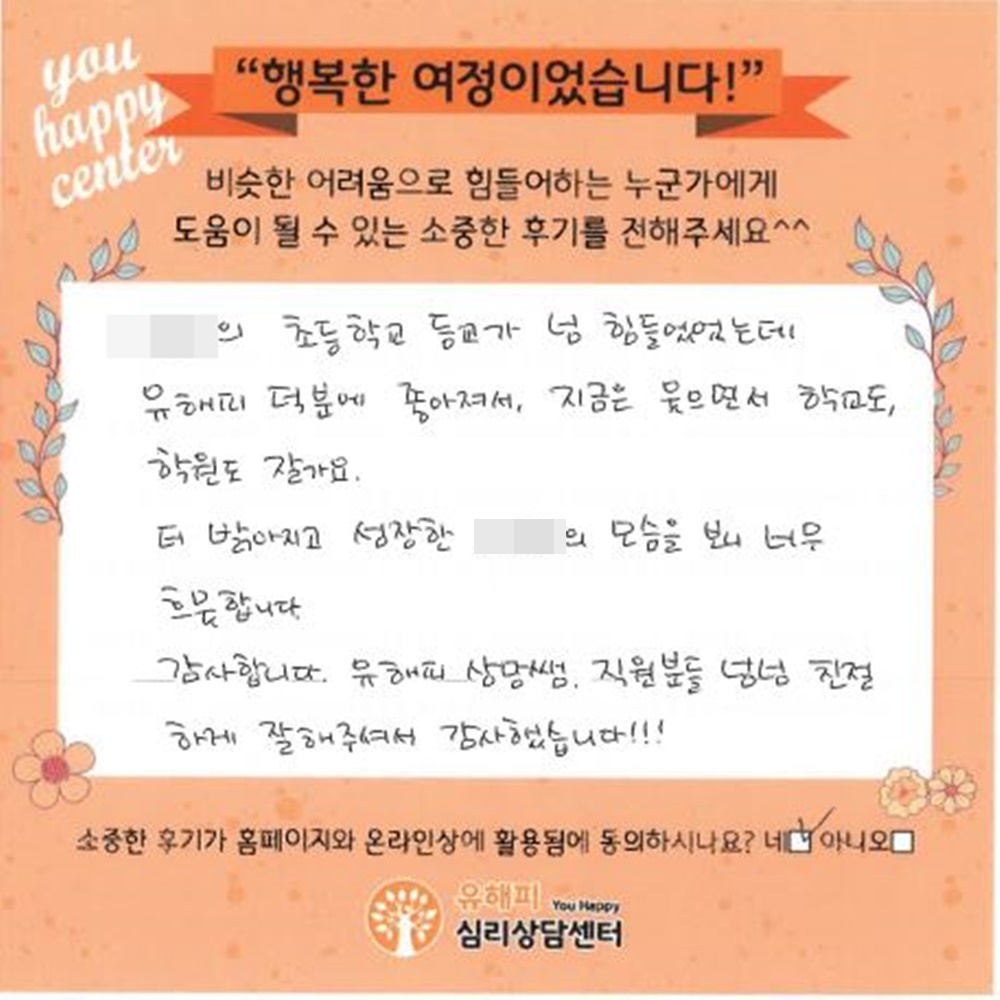 you
happy
center
“행복한 여정이었습니다!”
비슷한 어려움으로 힘들어하는 누군가에게
도움이 될 수 있는 소중한 후기를 전해주세요^^
의 초등학교 등교가 넘 힘들었었는데
유해피 덕분에 좋아져서, 지금은 웃으면서 학교도,
학원도 잘가요.
더 밝아지고 성장한 의 모습을 보니 너무
흐뭇합니다
감사합니다. 유해피 상명쌤, 직원분들 넘넘 친절
하게 잘해주셔서 감사했습니다!!!
소중한 후기가 홈페이지와 온라인상에 활용됨에 동의하시나요? 네 아니오
유해피 You Happy
심리상담센터